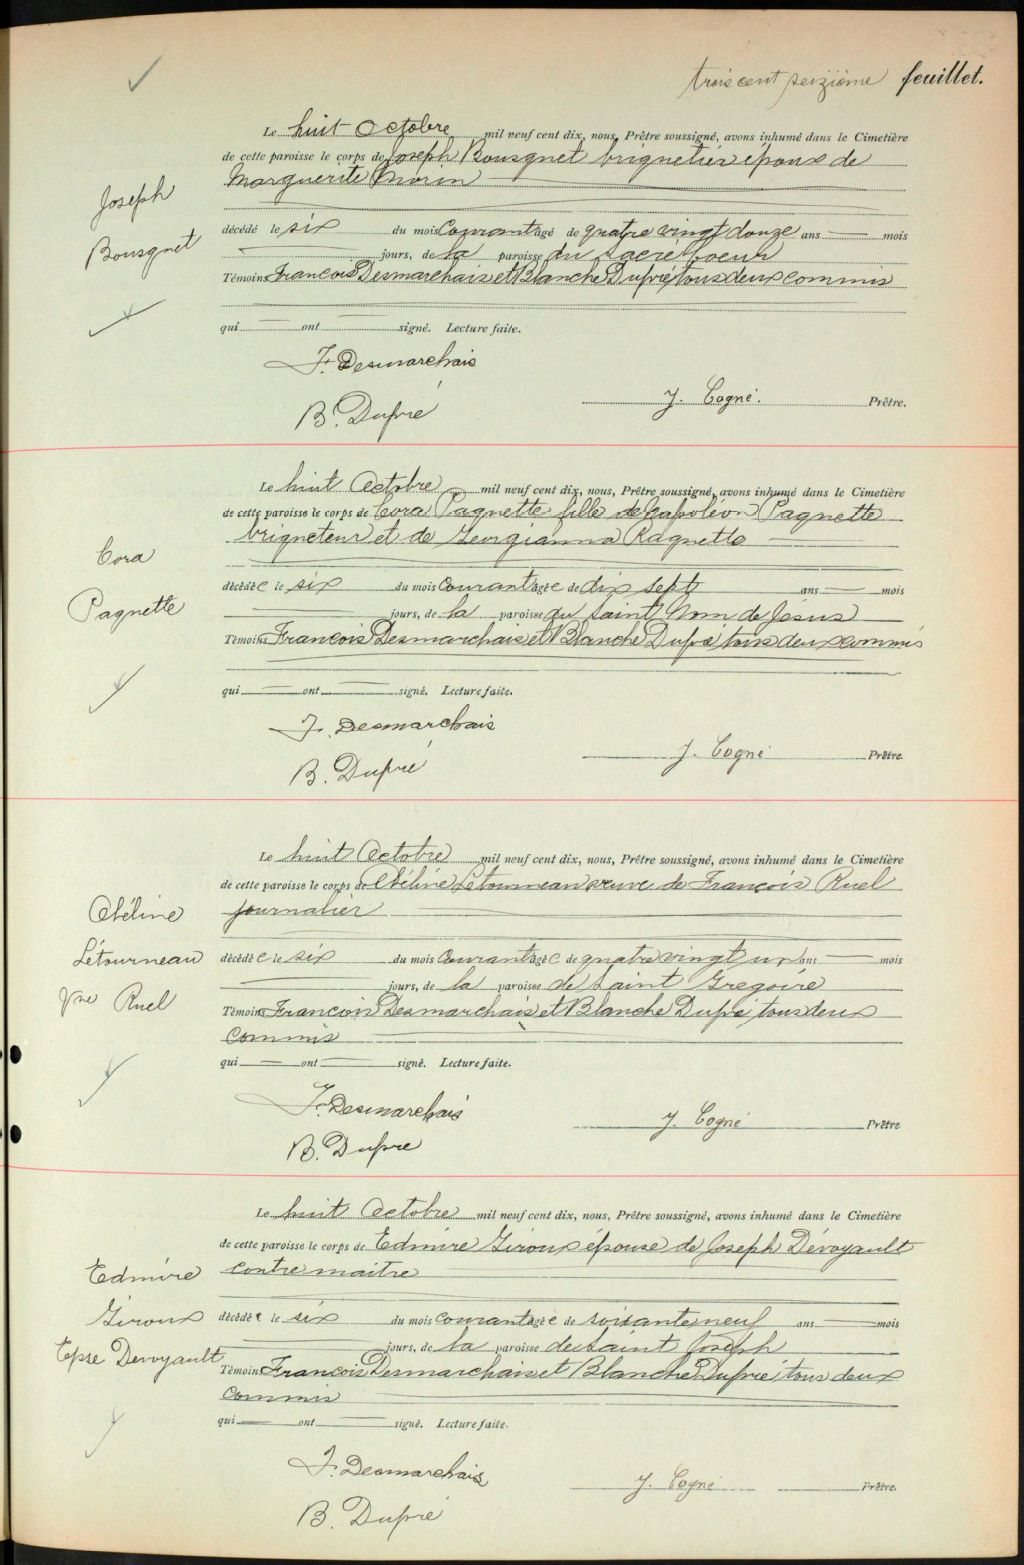 trois cent seizième feuillet.
Le huit Octobre mil neuf cent dix, nous, Prêtre soussigné, avons inhumé dans le Cimetière
de cette paroisse le corps de Joseph Bousquet briquetier époux de
Marguerite Morin
Joseph
Bousquet
décédé le six du mois Courant âgé de quatre vingt douze ans — mois
— jours, de la paroisse du Sacre Coeur
Témoins François Desmarchais et Blanche Dupré, tous deux commis
qui — ont — signé. Lecture faite.
F. Desmarchais
J. Cogné. Prêtre.
B. Dupré
Le huit Octobre mil neuf cent dix, nous, Prêtre soussigné, avons inhumé dans le Cimetière
de cette paroisse le corps de Cora Paquette fille de Napoléon Paquette
briqueteur et de Georgianna Raquette
Cora
Paquette
décédée le six du mois Courant âgée de dix sept ans — mois
— jours, de la paroisse du Saint Nom de Jésus
Témoins François Desmarchais et Blanche Dupré tous deux commis
qui — ont — signé. Lecture faite.
F. Desmarchais
J. Cogné Prêtre.
B. Dupré
Le huit Octobre mil neuf cent dix, nous, Prêtre soussigné, avons inhumé dans le Cimetière
de cette paroisse le corps de Obéline Letourneau veuve de François Ruel
journalier
Obéline
Létourneau
Vve Ruel
décédée le six du mois Courant âgée de quatre vingt un ans — mois
— jours, de la paroisse de Saint Gregoire
Témoins François Desmarchais et Blanche Dupré, tous deux
commis
qui — ont — signé. Lecture faite.
F. Desmarchais
J. Cogné Prêtre
B. Dupré
Le huit Octobre mil neuf cent dix, nous, Prêtre soussigné, avons inhumé dans le Cimetière
de cette paroisse le corps de Edmire Giroux épouse de Joseph Dévoyault
contre maitre
Edmire
Giroux
Epse Devoyault
décédée le six du mois courant âgée de soixante neuf ans — mois
— jours, de la paroisse de Saint Joseph
Témoins François Desmarchais et Blanche Dupré, tous deux
commis
qui — ont — signé. Lecture faite.
F. Desmarchais
J. Cogné Prêtre.
B. Dupré